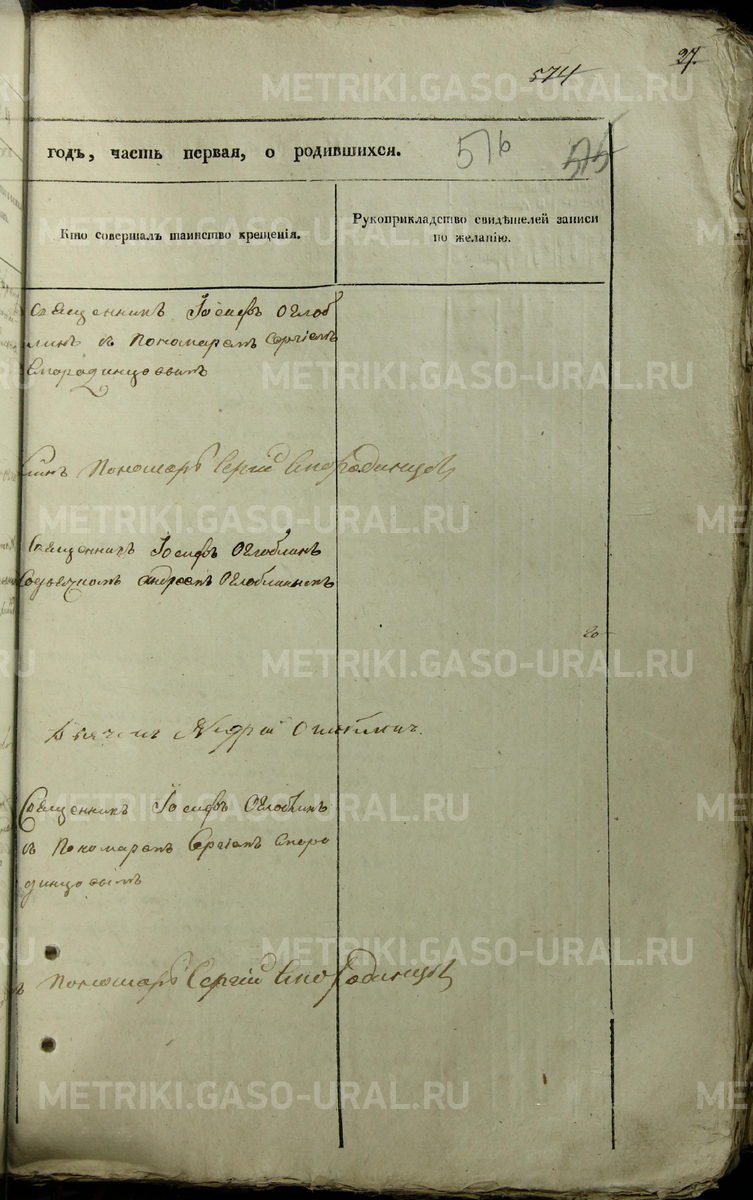 27.
574
годъ, часть первая, о родившихся.
576
575
Кто совершалъ таинство крещенія.
Рукоприкладство свидѣтелей записи
по желанію.
Священникъ Іосифъ Оглоб
линъ съ Пономаремъ Сергіемъ
Смородинцовымъ
Пономарь Сергій Смородинцовъ
Священникъ Іосифъ Оглоблинъ
Содьячкомъ Андреемъ Оглоблинымъ
Андрей Оглоблинъ.
Священникъ Іосифъ Оглоблинъ
съ Пономаремъ Сергіемъ Сморо
динцовымъ
Пономарь Сергій Смородинцовъ
METRIKI.GASO-URAL.RU